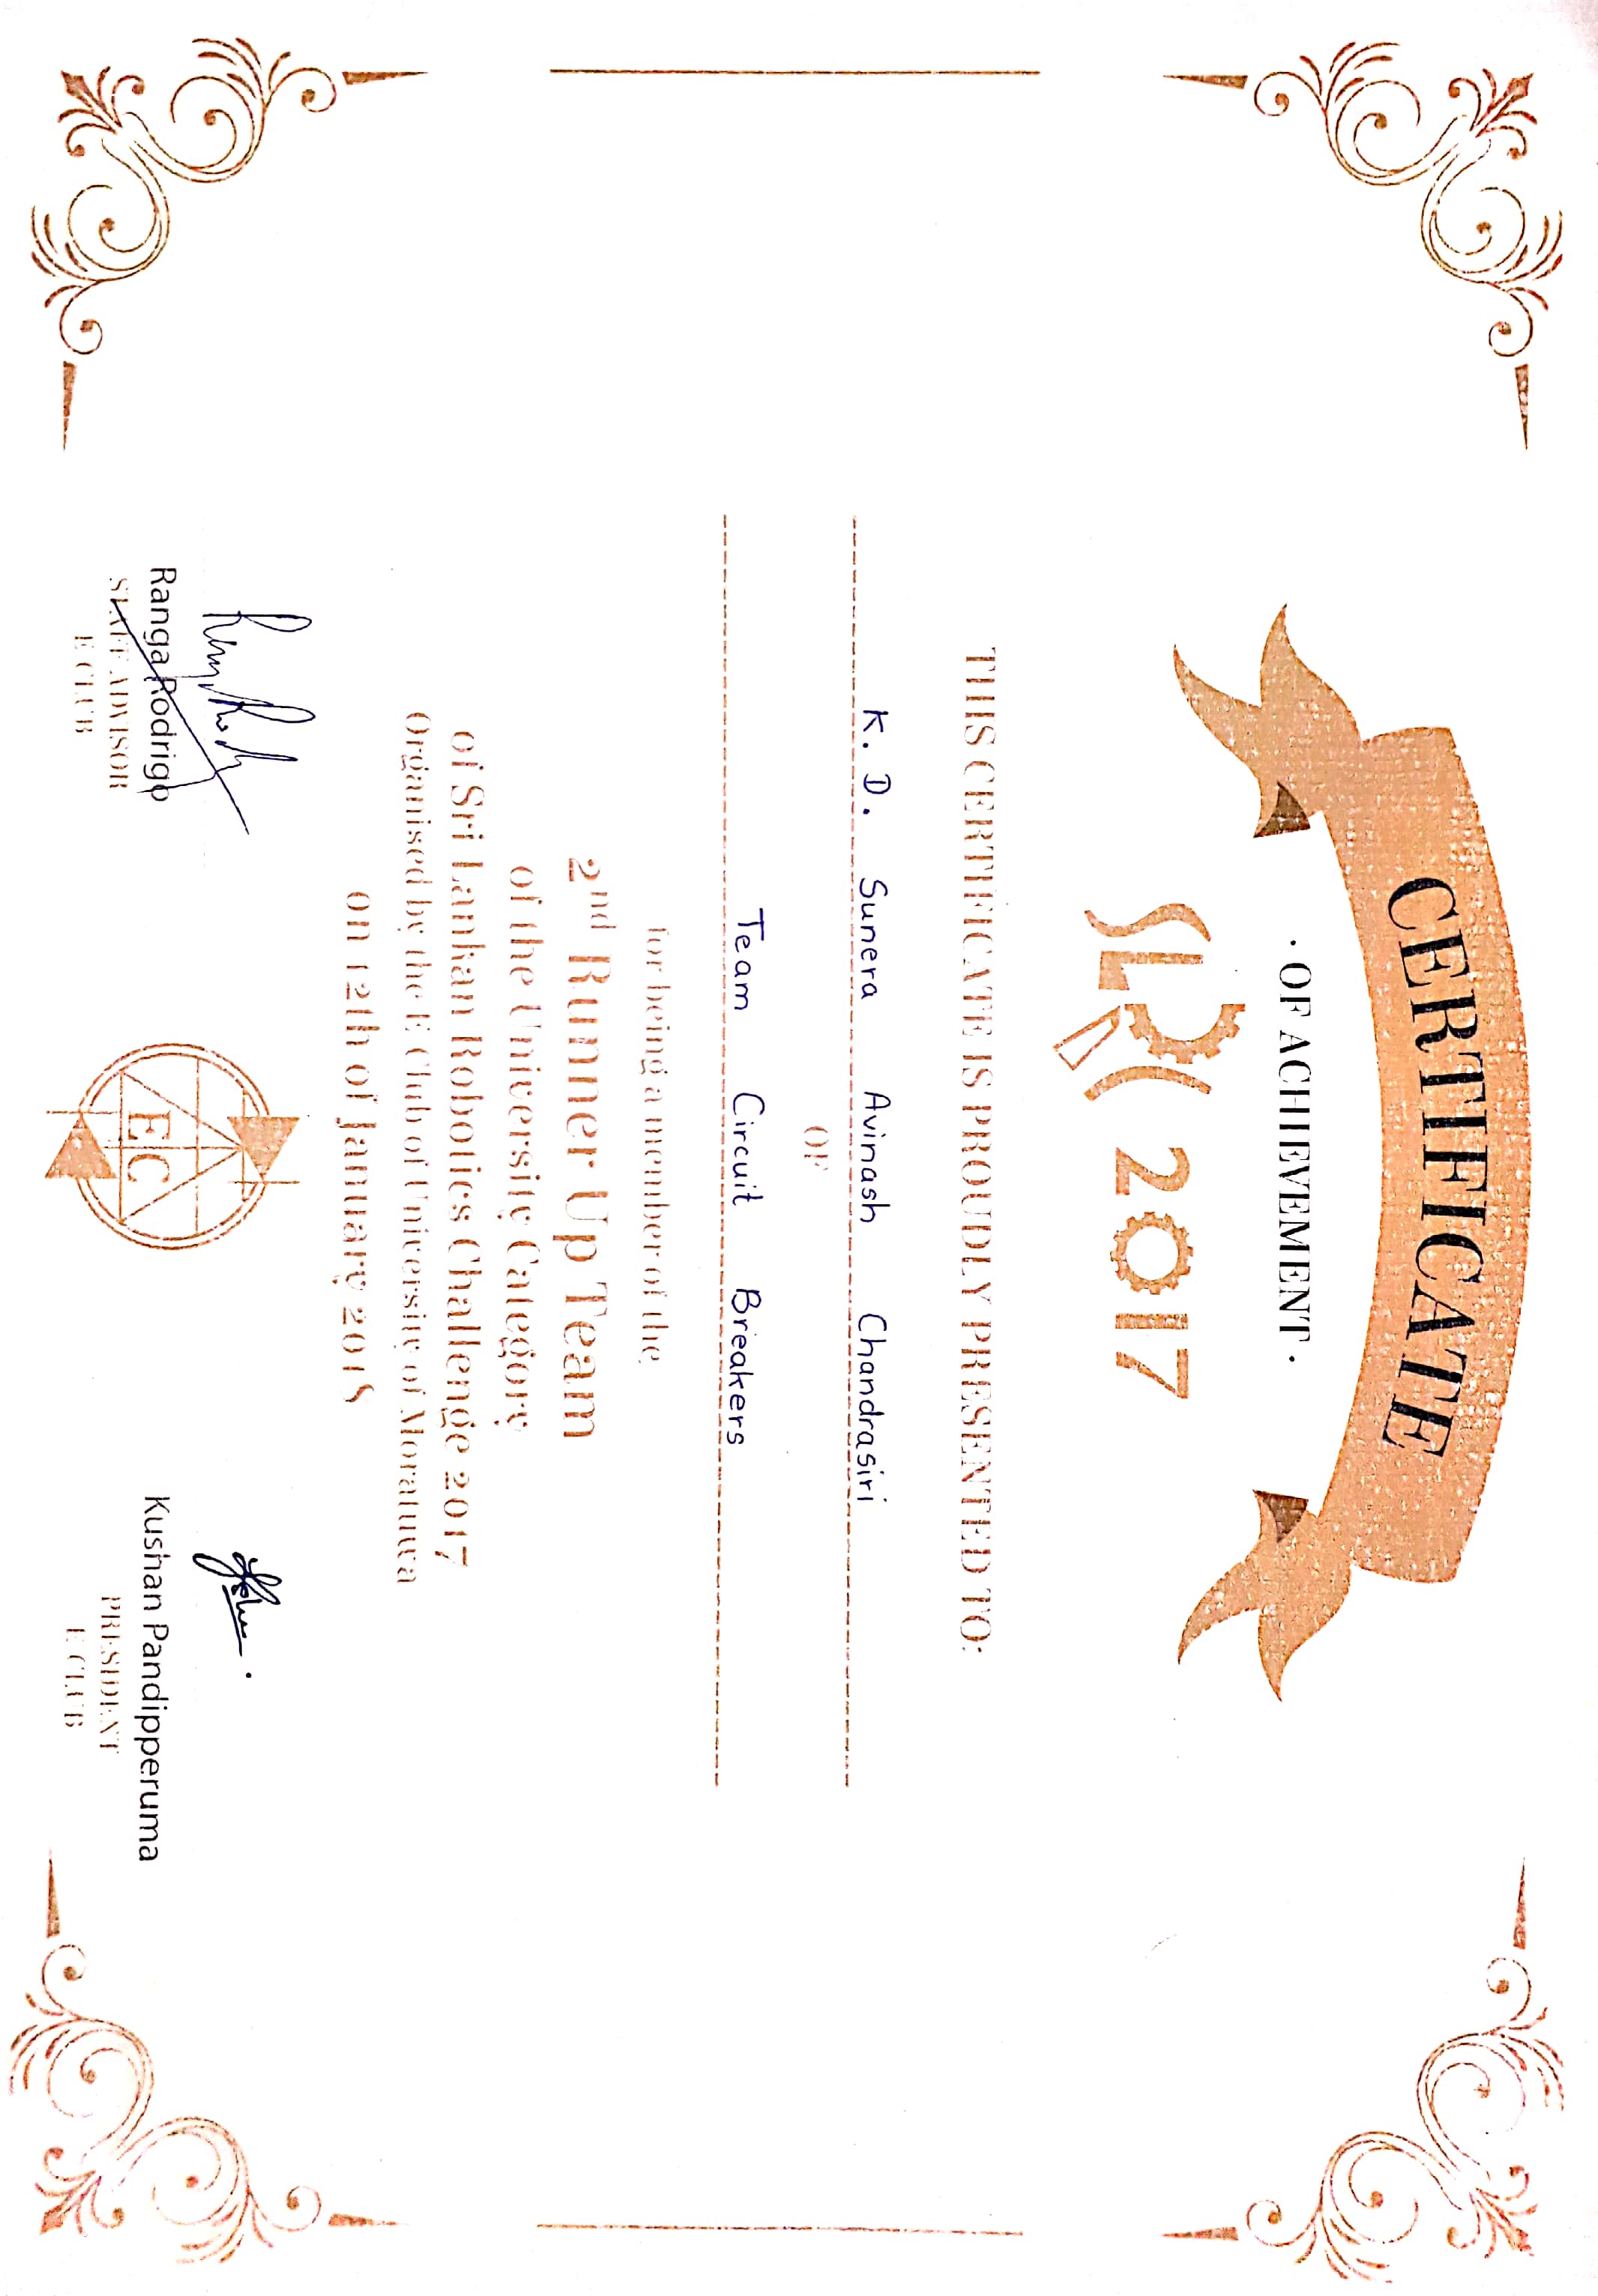 CERTIFICATE
· OF ACHIEVEMENT ·
SLRC 2017
THIS CERTIFICATE IS PROUDLY PRESENTED TO:
K. D. Sunera Avinash Chandrasiri
OF
Team Circuit Breakers
for being a member of the
2nd Runner Up Team
of the University Category
of Sri Lankan Robotics Challenge 2017
Organised by the E Club of University of Moratuwa
on 12th of January 2018
EC
Ranga Rodrigo
STAFF ADVISOR
E CLUB
Kushan Pandipperuma
PRESIDENT
E CLUB